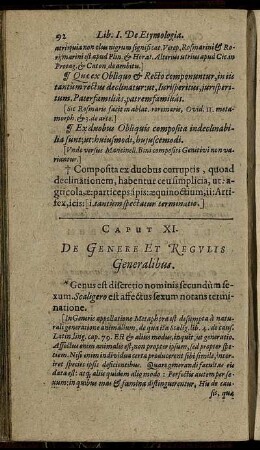 92 Lib. I. De Etymologia.
utriusque non olus nigrum significat. Vt
rismarini est apud Plin. & Horat. Alterius utrius apud Cic. in
Protag. & Caton. de ambitu.
¶ Quæ ex Obliquo & Recto componuntur, in iis
tantùm rectus declinatur: ut, Iurisperitus, jurisperi-
tum. Paterfamiliâs, patremfamiliâs.
(Sic Rosmarie facit in ablat. rorimaris, Ovid. 12. meta-
morph. & 3. de arte.)
¶ Ex duobus Obliquis composita indeclinabi-
lia sunt; ut: huiusmodi, huiuscemodi.
(Unde versus Mancinell. Bini compositi Genitivi non va-
riantur.)
† Composita ex duobus corruptis, quoad
declinationem, habentur ceu simplicia, ut: a-
gricola, æ: particeps, ipis: æquinoctium, ii: Arti-
fex, icis: (tantùm spectatur terminatio.)
CAPUT XI.
DE GENERE ET REGULIS
Generalibus.
* Genus est discretio nominis secundùm se-
xum. Scaligero est affectus sexum notans termi-
natione.
(In Generis appellatione Metaphora est desumpta à natu-
rali generatione animalium, de qua ita Scalig. lib. 4. de caus.
Latin. ling. cap. 79. Est & alius modus, in quit, in generatio.
Affectus enim animalis est, non propter ipsum, sed propter spe-
ciem. Nisi enim individua certa producerent sibi similia, interi-
ret species ipsis deficientibus. Quare generandi facultas ei
data est: atq; aliis quidem alio modo: Perfectis autem per se-
xum; in quibus mas & fæmina distinguerentur, Hic de cau-
sis, quæ